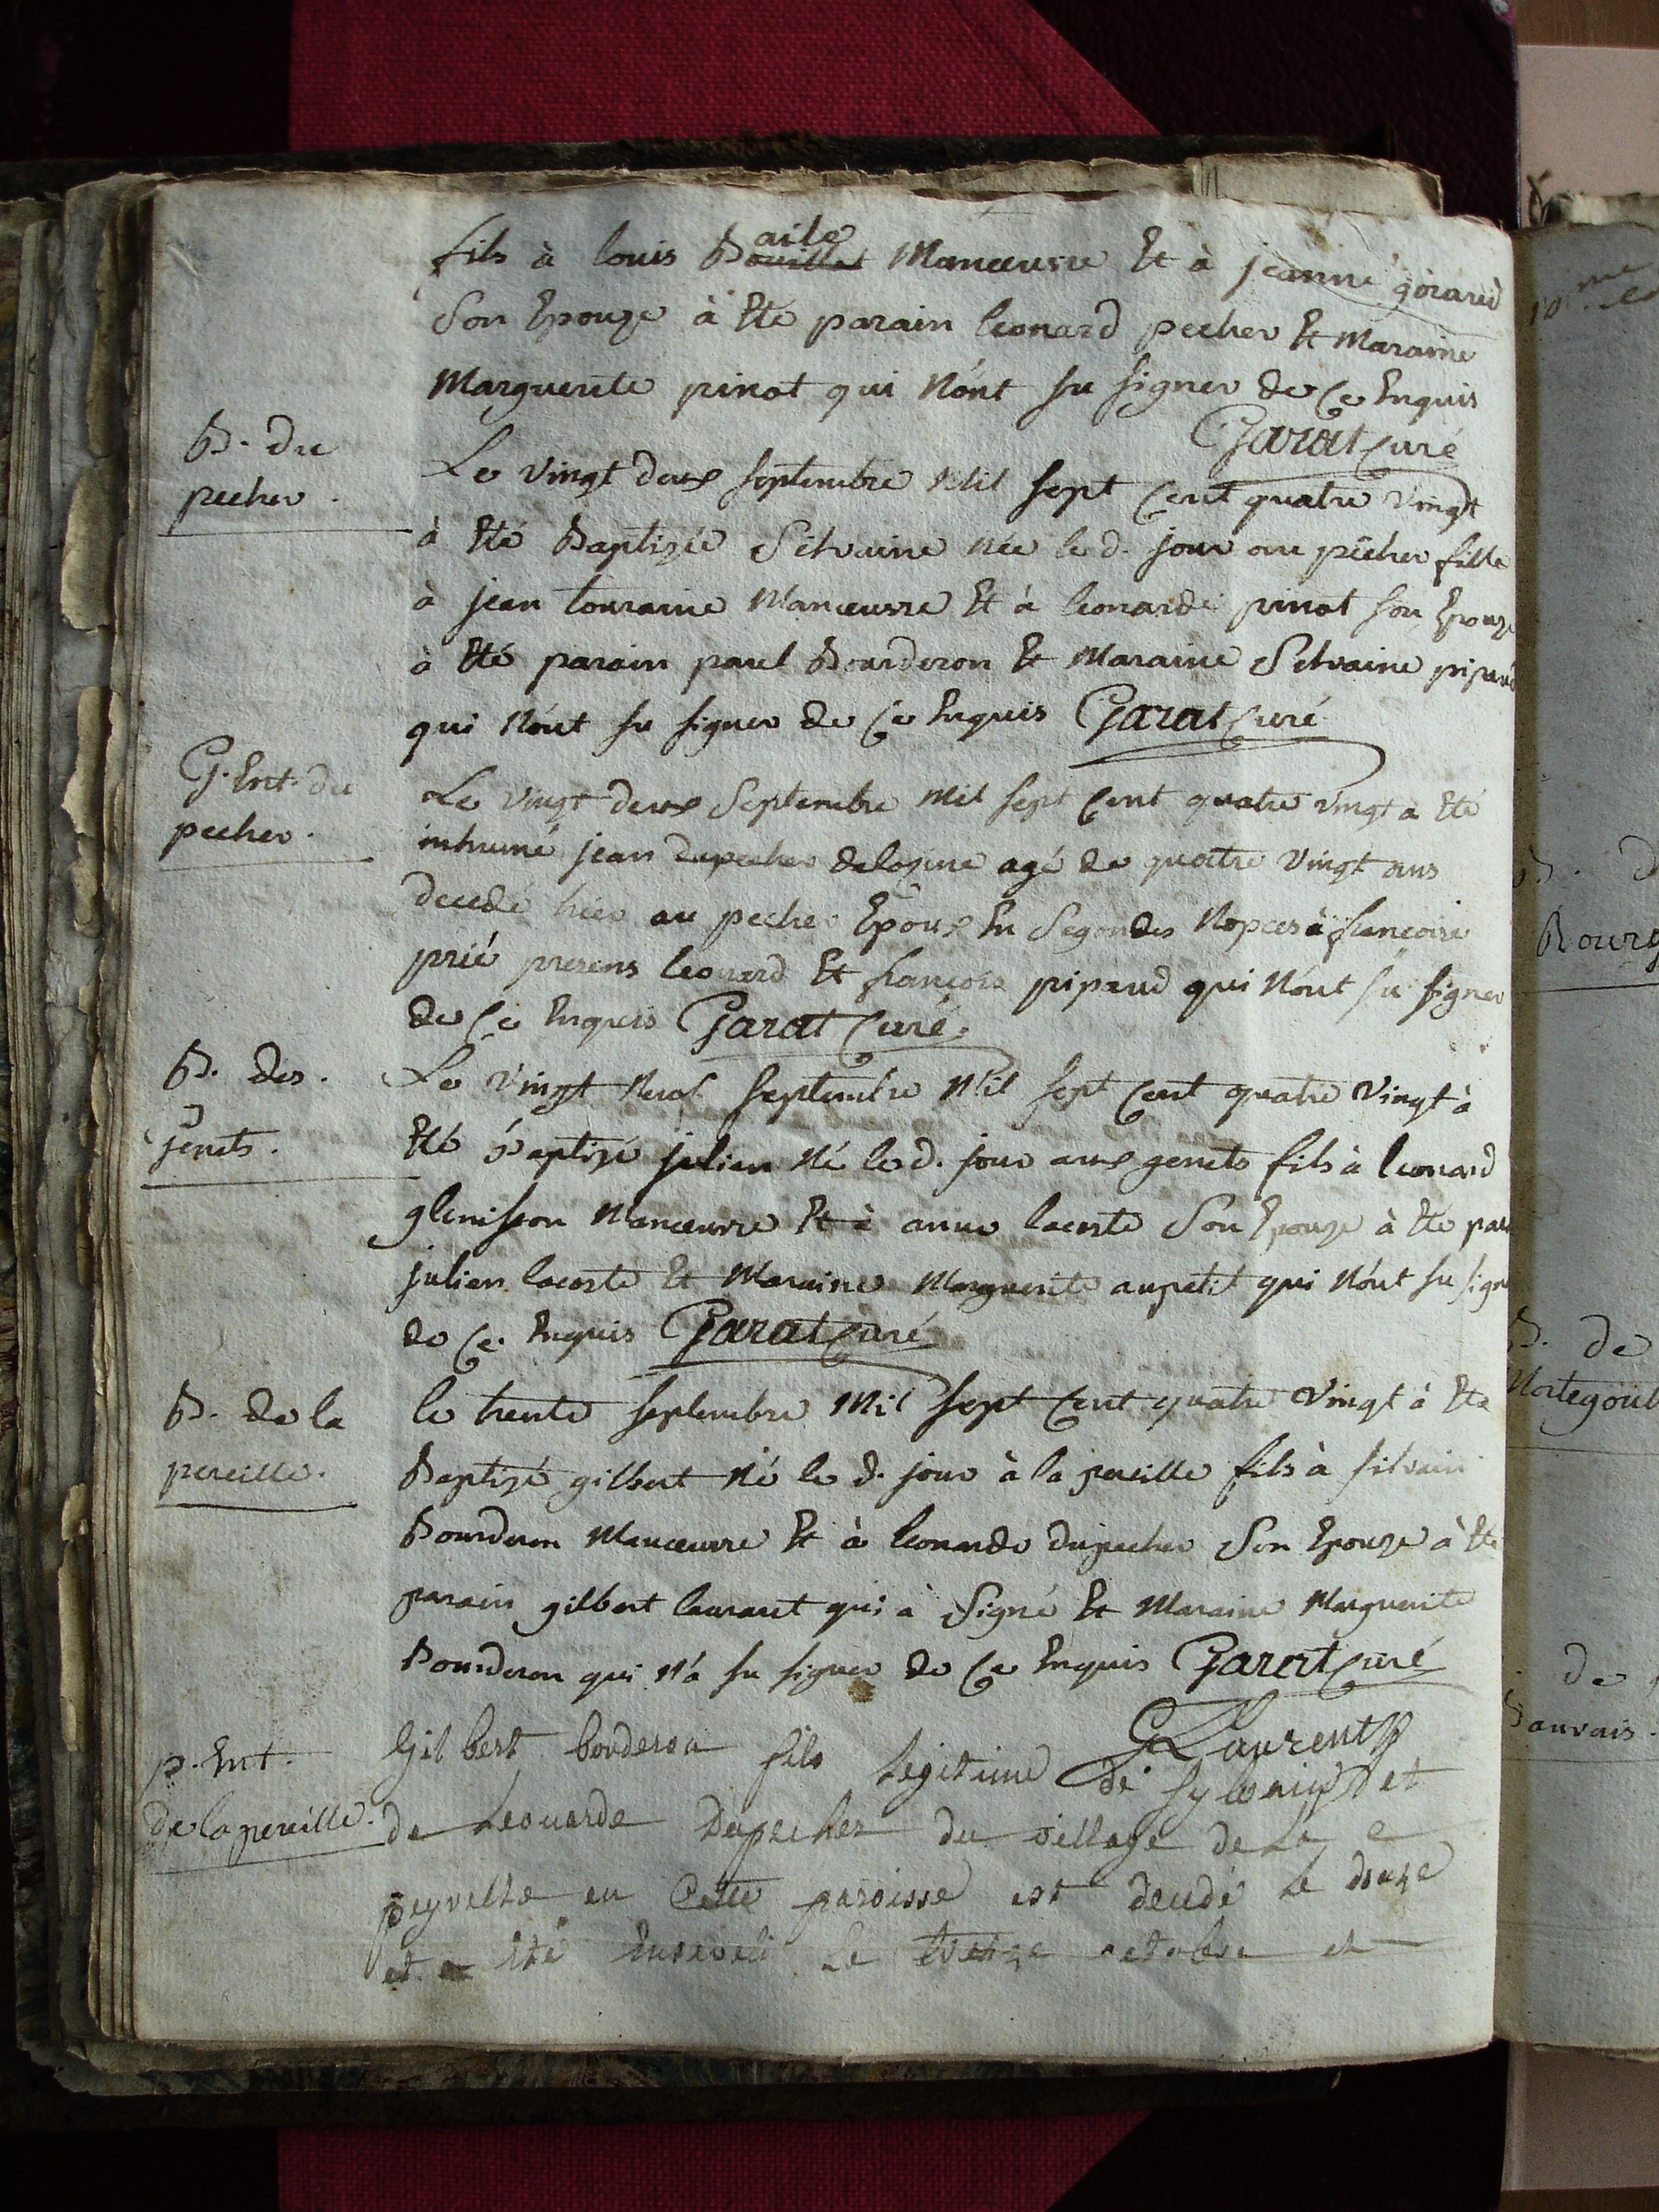 fils à louis Baile Manœuvre Et à jeanne girard
Son Epouze à Eté parain leonard pecher Et Maraine
Marguerite pinot qui N'ont su signer de Ce Enquis
Garat Curé
B. du
pecher.
Le vingt deux septembre Mil sept Cent quatre vingt
à Eté Baptizée Silvaine Née le d. jour au pêcher fille
à jean touraine Manœuvre Et à leonarde pinot son Epouze
à Eté parain paul Bourderon Et Maraine Silvaine pipaud
qui N'ont su signer de Ce Enquis Garat Curé
G. Ent. du
pecher.
Le vingt deux Septembre Mil sept Cent quatre vingt à Eté
inhumé jean dupecher agé de quatre vingt ans
decedé hier au pecher Epoux En Segondes Nopces à françoise
prié presens leonard Et françois pipaud qui N'ont su signer
de Ce Enquis Garat Curé
B. des.
jenets.
Le vingt Neuf septembre Mil sept Cent quatre vingt à
Eté Baptizé julien Né le d. jour aux genets fils à leonard
glenisson Manœuvre Et à anne lacoste Son Epouze à Eté par
julien lacoste Et Maraine Marguerite aupetit qui N'ont su sign
de Ce Enquis Garat Curé
B. de la
pereille.
le trente septembre Mil sept Cent quatre vingt à Eté
Baptizé gilbert Né le d. jour à la pereille fils à silvain
Bourderon Manœuvre Et à leonarde dupecher Son Epouze à Eté
parain gilbert laurant qui à Signé Et Maraine Marguerite
Bourderon qui N'a su signer de Ce Enquis Garat Curé
GLaurent
p. Ent.
de la pereille.
Gilbert bouderon fils legitime de sylvain et
de Leonarde Dupecher du village de la
peyrelle en Cette paroisse est decedé le douze
et a été Enseveli le treize octobre et
10me
Bourg
B. de
Mortegoul
de
Sauvais.